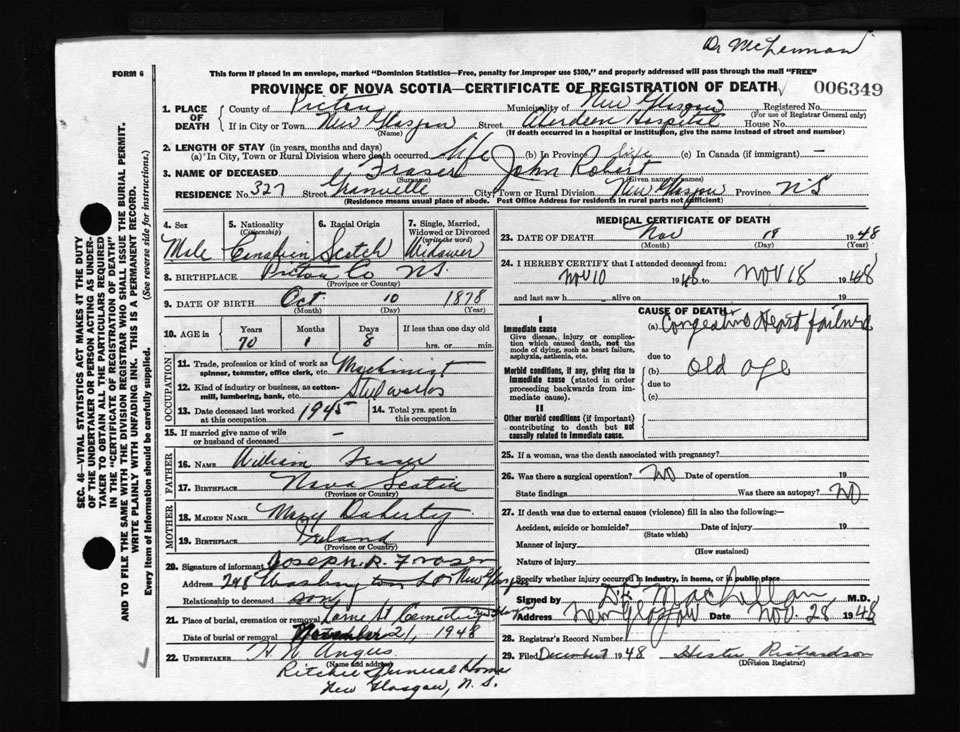 Dr McLennan
FORM 6
This form if placed in an envelope, marked "Dominion Statistics—Free, penalty for improper use $300," and properly addressed will pass through the mail "FREE"
PROVINCE OF NOVA SCOTIA—CERTIFICATE OF REGISTRATION OF DEATH 006349
1. PLACE OF DEATH
County of Pictou Municipality of New Glasgow Registered No.
(For use of Registrar General only)
If in City or Town New Glasgow Street Aberdeen Hospital House No.
(Name) (If death occurred in a hospital or institution, give the name instead of street and number)
2. LENGTH OF STAY (in years, months and days)
(a) In City, Town or Rural Division where death occurred life (b) In Province life (c) In Canada (if immigrant) —
3. NAME OF DECEASED Fraser John Robert
(Surname) (Given name or names)
RESIDENCE No. 327 Street Granville City, Town or Rural Division New Glasgow Province NS
(Residence means usual place of abode. Post Office Address for residents in rural parts not sufficient)
4. Sex Male
5. Nationality (Citizenship) Canadien
6. Racial Origin Scotch
7. Single, Married, Widowed or Divorced (write the word) Widower
8. BIRTHPLACE Pictou Co NS.
(Province or Country)
9. DATE OF BIRTH Oct 10 1878
(Month) (Day) (Year)
10. AGE in Years Months Days If less than one day old
70 1 8 hrs. or min.
OCCUPATION
11. Trade, profession or kind of work as spinner, teamster, office clerk, etc. Machinist
12. Kind of industry or business, as cotton-mill, lumbering, bank, etc. Steel works
13. Date deceased last worked at this occupation 1945
14. Total yrs. spent in this occupation
15. If married give name of wife or husband of deceased —
FATHER
16. NAME William Fraser
17. BIRTHPLACE Nova Scotia
(Province or Country)
MOTHER
18. MAIDEN NAME Mary Doherty
19. BIRTHPLACE Ireland
(Province or Country)
20. Signature of informant Joseph R. Fraser
Address 248 Washington St New Glasgow
Relationship to deceased son
21. Place of burial, cremation or removal Lorne St Cemetery New Glasgow
Date of burial or removal November 21, 1948
22. UNDERTAKER H W Angus
(Name and address)
Ritchie Funeral Home
New Glasgow, N.S.
MEDICAL CERTIFICATE OF DEATH
23. DATE OF DEATH Nov 18 1948
(Month) (Day) (Year)
24. I HEREBY CERTIFY that I attended deceased from:
Nov 10 1948 to Nov 18 1948
and last saw h alive on 19
CAUSE OF DEATH
I
Immediate cause
Give disease, injury or complication which caused death, not the mode of dying, such as heart failure, asphyxia, asthenia, etc.
(a) Congestive Heart failure
due to
Morbid conditions, if any, giving rise to immediate cause (stated in order proceeding backwards from immediate cause).
(b) old age
due to
(c)
II
Other morbid conditions (if important) contributing to death but not causally related to immediate cause.
25. If a woman, was the death associated with pregnancy?
26. Was there a surgical operation? NO Date of operation 19
State findings Was there an autopsy? NO
27. If death was due to external causes (violence) fill in also the following:—
Accident, suicide or homicide? Date of injury 19
(State which)
Manner of injury
(How sustained)
Nature of injury
Specify whether injury occurred in industry, in home, or in public place
Signed by MacMillan M.D.
Address New Glasgow Date Nov. 28 1948
28. Registrar's Record Number
29. Filed December 1 1948 Hester Richardson
(Division Registrar)
SEC. 46—VITAL STATISTICS ACT MAKES IT THE DUTY
OF THE UNDERTAKER OR PERSON ACTING AS UNDER-
TAKER TO OBTAIN ALL THE PARTICULARS REQUIRED
IN THE "CERTIFICATE OF REGISTRATION OF DEATH"
AND TO FILE THE SAME WITH THE DIVISION REGISTRAR WHO SHALL ISSUE THE BURIAL PERMIT.
WRITE PLAINLY WITH UNFADING INK. THIS IS A PERMANENT RECORD.
Every item of information should be carefully supplied. (See reverse side for instructions.)